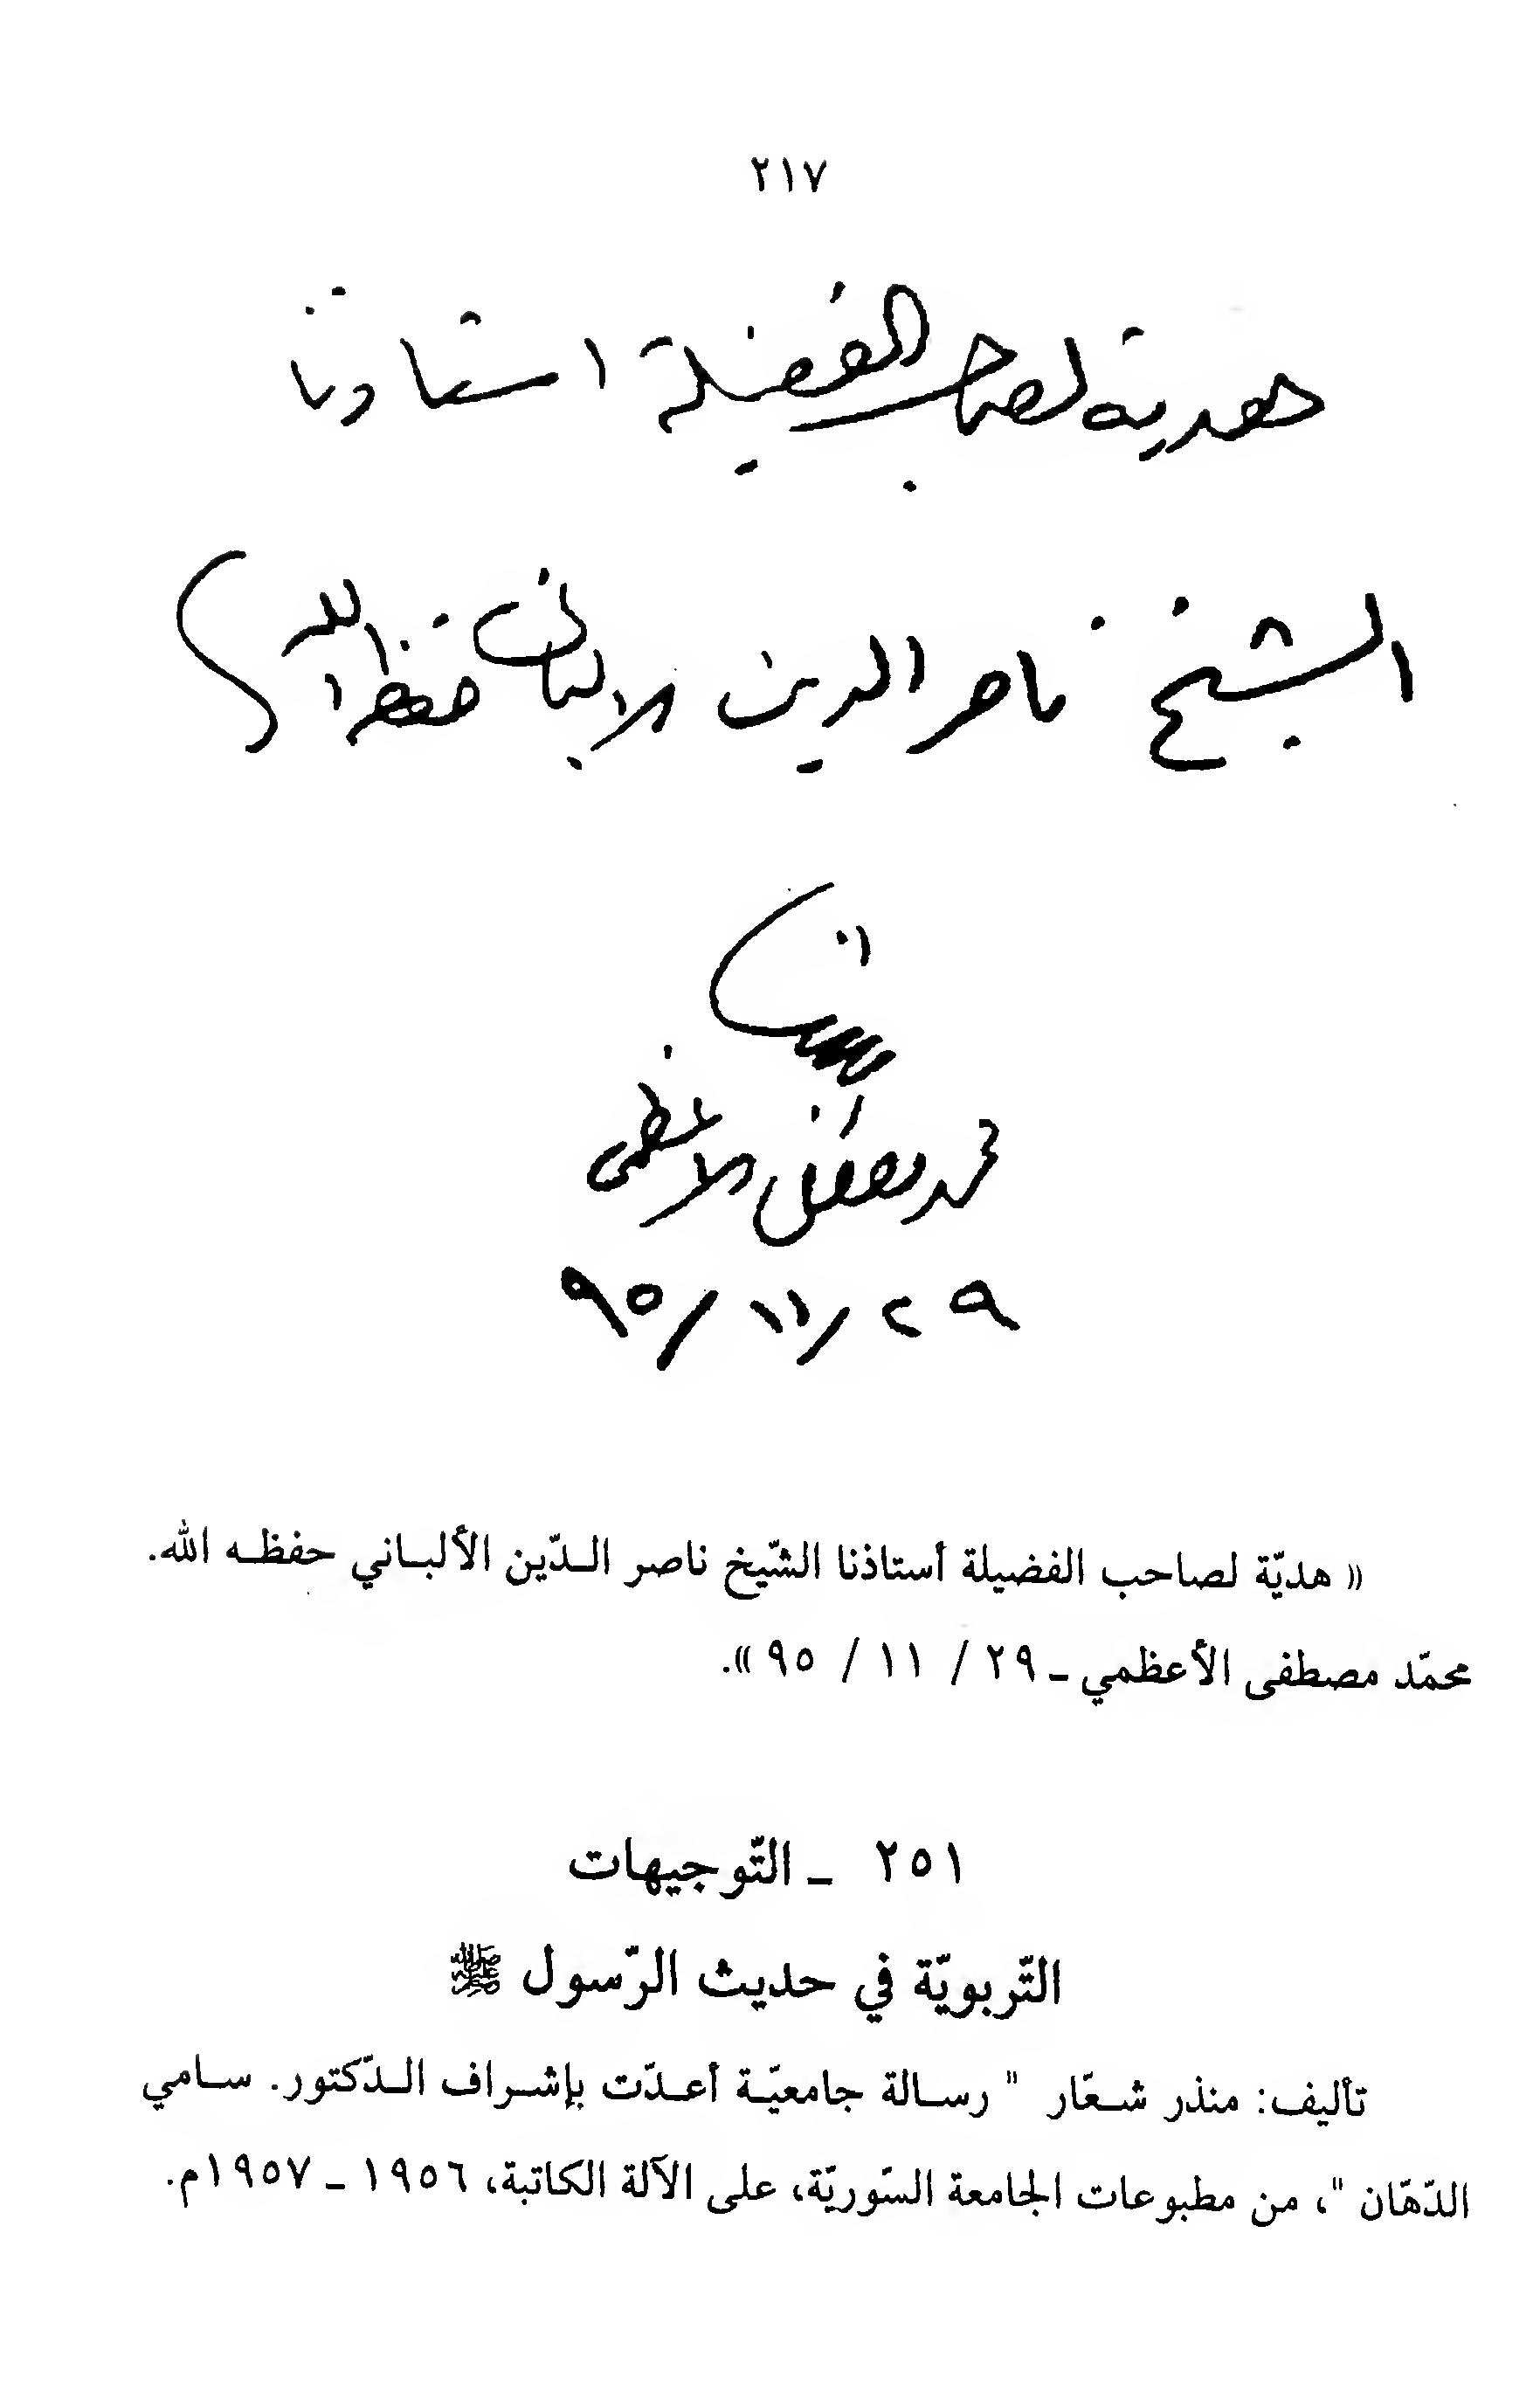 ٢١٧
هدية لصاحب الفضيلة استاذنا
الشيخ ناصر الدين الالباني حفظه الله
محمد مصطفى الاعظمي
٢٩ /١١/ ٩٥
« هديّة لصاحب الفضيلة أستاذنا الشّيخ ناصر الـدّين الألبـاني حفظـه الله.
محمّد مصطفى الأعظمي ـ ٢٩ / ١١ / ٩٥ ».
٢٥١ ـ التّوجيهات
التّربويّة في حديث الرّسول ﷺ
تأليف: منذر شـعّار " رسـالة جامعيّـة أعـدّت بإشـراف الـدّكتور. سـامي
الدّهّان "، من مطبوعات الجامعة السّوريّة، على الآلة الكاتبة، ١٩٥٦ ـ ١٩٥٧م.